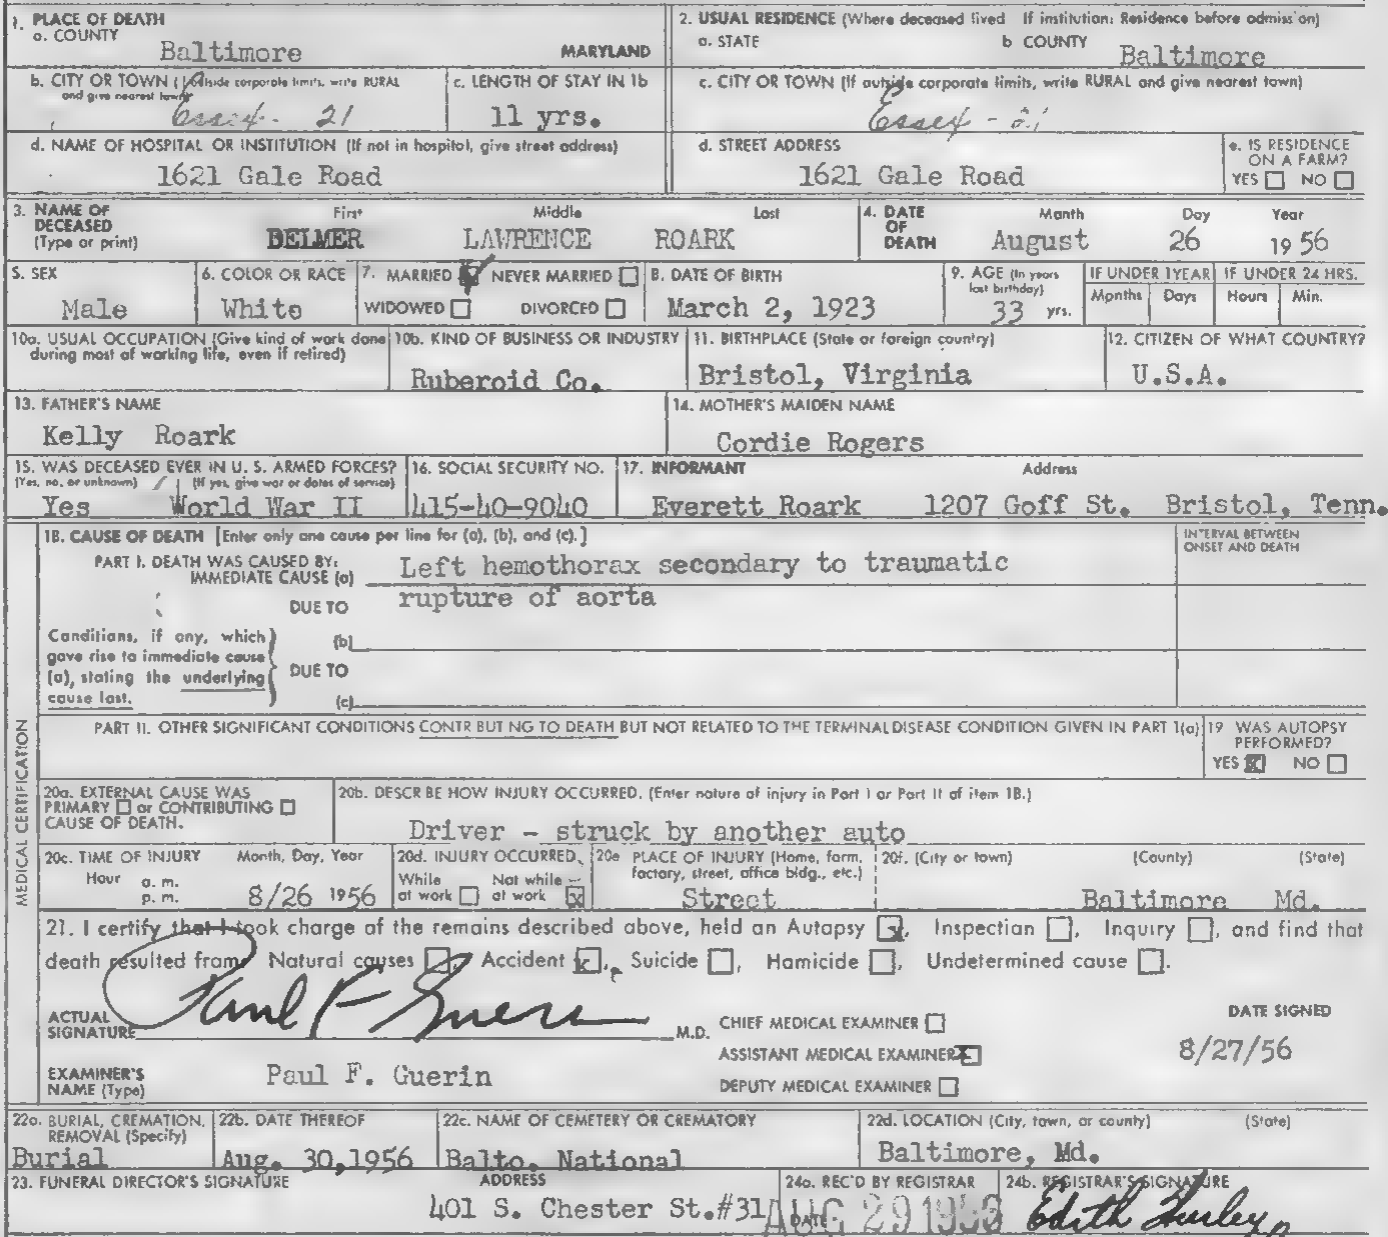 1. PLACE OF DEATH
a. COUNTY
Baltimore
MARYLAND
2. USUAL RESIDENCE (Where deceased lived If institution: Residence before admission)
a. STATE
b COUNTY
Baltimore
b. CITY OR TOWN (If outside corporate limits, write RURAL and give nearest town)
Essex - 21
c. LENGTH OF STAY IN 1b
11 yrs.
c. CITY OR TOWN (If outside corporate limits, write RURAL and give nearest town)
Essex - 21
d. NAME OF HOSPITAL OR INSTITUTION (If not in hospital, give street address)
1621 Gale Road
d. STREET ADDRESS
1621 Gale Road
e. IS RESIDENCE
ON A FARM?
YES NO
3. NAME OF
DECEASED
(Type or print)
First Middle Last
DELMER LAWRENCE ROARK
4. DATE
OF
DEATH
Month Day Year
August 26 1956
5. SEX
Male
6. COLOR OR RACE
White
7. MARRIED NEVER MARRIED
WIDOWED DIVORCED
8. DATE OF BIRTH
March 2, 1923
9. AGE (In years
last birthday)
33 yrs.
IF UNDER 1 YEAR
Months Days
IF UNDER 24 HRS.
Hours Min.
10a. USUAL OCCUPATION (Give kind of work done
during most of working life, even if retired)
10b. KIND OF BUSINESS OR INDUSTRY
Ruberoid Co.
11. BIRTHPLACE (State or foreign country)
Bristol, Virginia
12. CITIZEN OF WHAT COUNTRY?
U.S.A.
13. FATHER'S NAME
Kelly Roark
14. MOTHER'S MAIDEN NAME
Cordie Rogers
15. WAS DECEASED EVER IN U. S. ARMED FORCES?
(Yes, no, or unknown) (If yes, give war or dates of service)
Yes World War II
16. SOCIAL SECURITY NO.
415-40-9040
17. INFORMANT Address
Everett Roark 1207 Goff St. Bristol, Tenn.
18. CAUSE OF DEATH [Enter only one cause per line for (a), (b), and (c).]
INTERVAL BETWEEN
ONSET AND DEATH
PART I. DEATH WAS CAUSED BY:
IMMEDIATE CAUSE (a)
Left hemothorax secondary to traumatic
DUE TO
rupture of aorta
Conditions, if any, which
gave rise to immediate cause
(a), stating the underlying
cause last.
(b)
DUE TO
(c)
PART II. OTHER SIGNIFICANT CONDITIONS CONTR BUT NG TO DEATH BUT NOT RELATED TO THE TERMINAL DISEASE CONDITION GIVEN IN PART 1(a)
19 WAS AUTOPSY
PERFORMED?
YES X NO
MEDICAL CERTIFICATION
20a. EXTERNAL CAUSE WAS
PRIMARY or CONTRIBUTING
CAUSE OF DEATH.
20b. DESCR BE HOW INJURY OCCURRED. (Enter nature of injury in Part I or Part II of item 18.)
Driver - struck by another auto
20c. TIME OF INJURY Month, Day, Year
Hour a. m.
p. m.
8/26 1956
20d. INJURY OCCURRED
While Not while
at work at work x
20e PLACE OF INJURY (Home, farm,
factory, street, office bldg., etc.)
Street
20f. (City or town) (County) (State)
Baltimore Md.
21. I certify that I took charge of the remains described above, held an Autopsy x, Inspection , Inquiry , and find that
death resulted from: Natural causes , Accident x, Suicide , Homicide , Undetermined cause .
ACTUAL
SIGNATURE
Paul F. Guerin
M.D.
CHIEF MEDICAL EXAMINER
ASSISTANT MEDICAL EXAMINER X
DEPUTY MEDICAL EXAMINER
DATE SIGNED
8/27/56
EXAMINER'S
NAME (Type)
Paul F. Guerin
22a. BURIAL, CREMATION,
REMOVAL (Specify)
Burial
22b. DATE THEREOF
Aug. 30,1956
22c. NAME OF CEMETERY OR CREMATORY
Balto. National
22d. LOCATION (City, town, or county) (State)
Baltimore, Md.
23. FUNERAL DIRECTOR'S SIGNATURE ADDRESS
401 S. Chester St.#31
24a. REC'D BY REGISTRAR
DATE
AUG 29
24b. REGISTRAR'S SIGNATURE
Edith Hurley